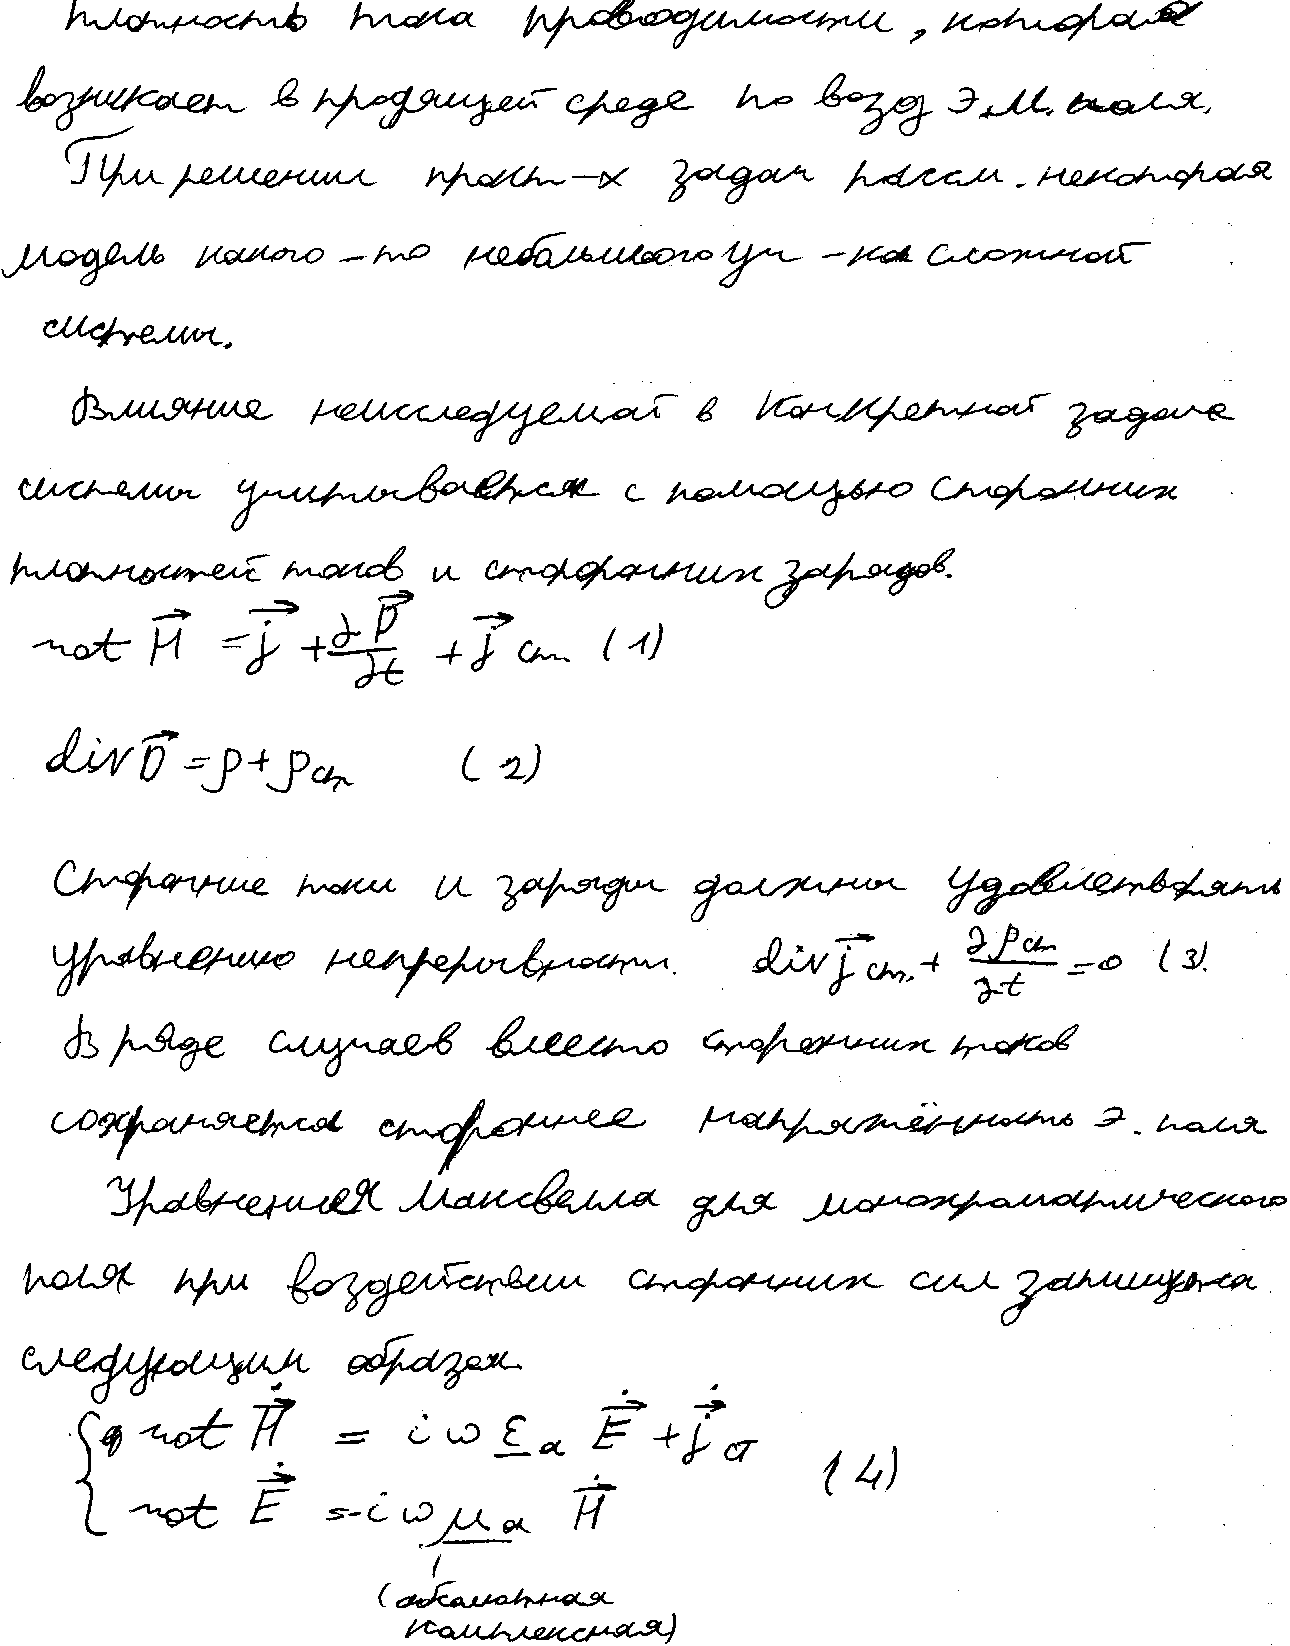 плотность тока проводимости, которая
возникает в продящей среде по возд э.м. поля.
При решении практ-х задач рассм. некоторая
модель какого-то небольшого уч-ка сложной
системы.
Влияние неисследуемой в конкретной задаче
системы учитывается с помощью сторонних
плотностей токов и сторонних зарядов.
rot H⃗ = j⃗ + ∂D⃗/∂t + j⃗ ст. (1)
div D⃗ = ρ + ρ ст (2)
Сторонние токи и заряды должны удовлетворять
уравнению непрерывности. div j⃗ ст. + ∂ρ ст/∂t = 0 (3).
В ряде случаев вместо сторонних токов
сохраняется стороннее напряжённость э. поля
Уравнения Максвелла для монохроматического
поля при воздействии сторонних сил запишутся
следующим образом
{ rot Ḣ⃗ = i ω ε̲a Ė⃗ + j̇⃗ ст
rot Ė⃗ = -i ω μ̲a Ḣ⃗ (4)
(абсолютная
комплексная)